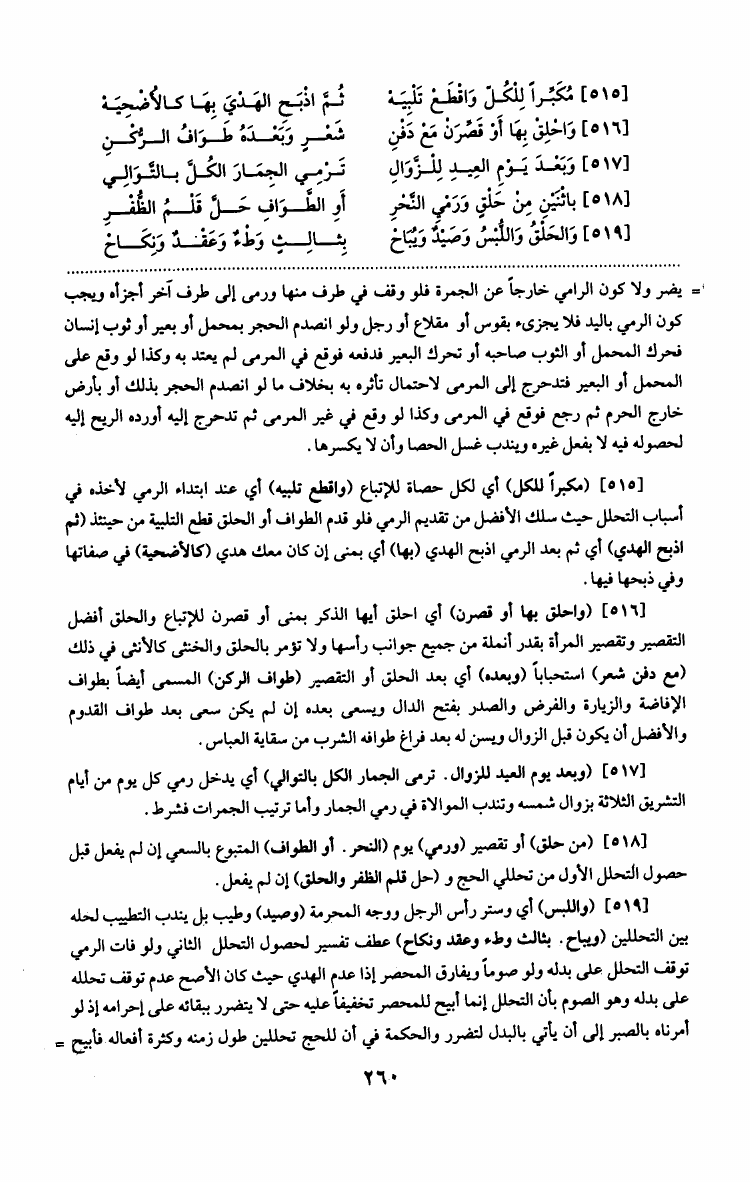 [٥١٥] مُكَبِّراً لِلْكُلِّ وَاقْطَعْ تَلْبِيَهْ ثُمَّ اذْبَحِ الهَدْيَ بِهَا كَالأُضْحِيَهْ
[٥١٦] وَاحْلِقْ بِهَا أَوْ قَصِّرَنْ مَعْ دَفْنِ شَعْرٍ وَبَعْدَهُ طَوَافُ الرُّكْنِ
[٥١٧] وَبَعْدَ يَوْمِ العِيدِ لِلزَّوَالِ تَرْمِي الجِمَارَ الكُلَّ بِالتَّوَالِي
[٥١٨] بِاثْنَيْنِ مِنْ حَلْقٍ وَرَمْيِ النَّحْرِ أَوِ الطَّوَافِ حَلَّ قَلْمُ الظُّفْرِ
[٥١٩] وَالحَلْقُ وَاللُّبْسُ وَصَيْدٌ وَيُبَاحْ بِثَالِثٍ وَطْءٌ وَعَقْدٌ وَنِكَاحْ
= يضر ولا كون الرامي خارجاً عن الجمرة فلو وقف في طرف منها ورمى إلى طرف آخر أجزأه ويجب
كون الرمي باليد فلا يجزىء بقوس أو مقلاع أو رجل ولو انصدم الحجر بمحمل أو بعير أو ثوب إنسان
فحرك المحمل أو الثوب صاحبه أو تحرك البعير فدفعه فوقع في المرمى لم يعتد به وكذا لو وقع على
المحمل أو البعير فتدحرج إلى المرمى لاحتمال تأثره به بخلاف ما لو انصدم الحجر بذلك أو بأرض
خارج الحرم ثم رجع فوقع في المرمى وكذا لو وقع في غير المرمى ثم تدحرج إليه أورده الريح إليه
لحصوله فيه لا بفعل غيره ويندب غسل الحصا وأن لا يكسرها.
[٥١٥] (مكبراً للكل) أي لكل حصاة للإتباع (واقطع تلبيه) أي عند ابتداء الرمي لأخذه في
أسباب التحلل حيث سلك الأفضل من تقديم الرمي فلو قدم الطواف أو الحلق قطع التلبية من حينئذ (ثم
اذبح الهدي) أي ثم بعد الرمي اذبح الهدي (بها) أي بمنى إن كان معك هدي (كالأضحية) في صفاتها
وفي ذبحها فيها.
[٥١٦] (واحلق بها أو قصرن) أي احلق أيها الذكر بمنى أو قصرن للإتباع والحلق أفضل
التقصير وتقصير المرأة بقدر أنملة من جميع جوانب رأسها ولا تؤمر بالحلق والخنثى كالأنثى في ذلك
(مع دفن شعر) استحباباً (وبعده) أي بعد الحلق أو التقصير (طواف الركن) المسمى أيضاً بطواف
الإفاضة والزيارة والفرض والصدر بفتح الدال ويسعى بعده إن لم يكن سعى بعد طواف القدوم
والأفضل أن يكون قبل الزوال ويسن له بعد فراغ طوافه الشرب من سقاية العباس.
[٥١٧] (وبعد يوم العيد للزوال. ترمى الجمار الكل بالتوالي) أي يدخل رمي كل يوم من أيام
التشريق الثلاثة بزوال شمسه وتندب الموالاة في رمي الجمار وأما ترتيب الجمرات فشرط.
[٥١٨] (من حلق) أو تقصير (ورمي) يوم (النحر. أو الطواف) المتبوع بالسعي إن لم يفعل قبل
حصول التحلل الأول من تحللي الحج و (حل قلم الظفر والحلق) إن لم يفعل.
[٥١٩] (واللبس) أي وستر رأس الرجل ووجه المحرمة (وصيد) وطيب بل يندب التطييب لحله
بين التحللين (ويباح. بثالث وطء وعقد ونكاح) عطف تفسير لحصول التحلل الثاني ولو فات الرمي
توقف التحلل على بدله ولو صوماً ويفارق المحصر إذا عدم الهدي حيث كان الأصح عدم توقف تحلله
على بدله وهو الصوم بأن التحلل إنما أبيح للمحصر تخفيفاً عليه حتى لا يتضرر ببقائه على إحرامه إذ لو
أمرناه بالصبر إلى أن يأتي بالبدل لتضرر والحكمة في أن للحج تحللين طول زمنه وكثرة أفعاله فأبيح =
٢٦٠